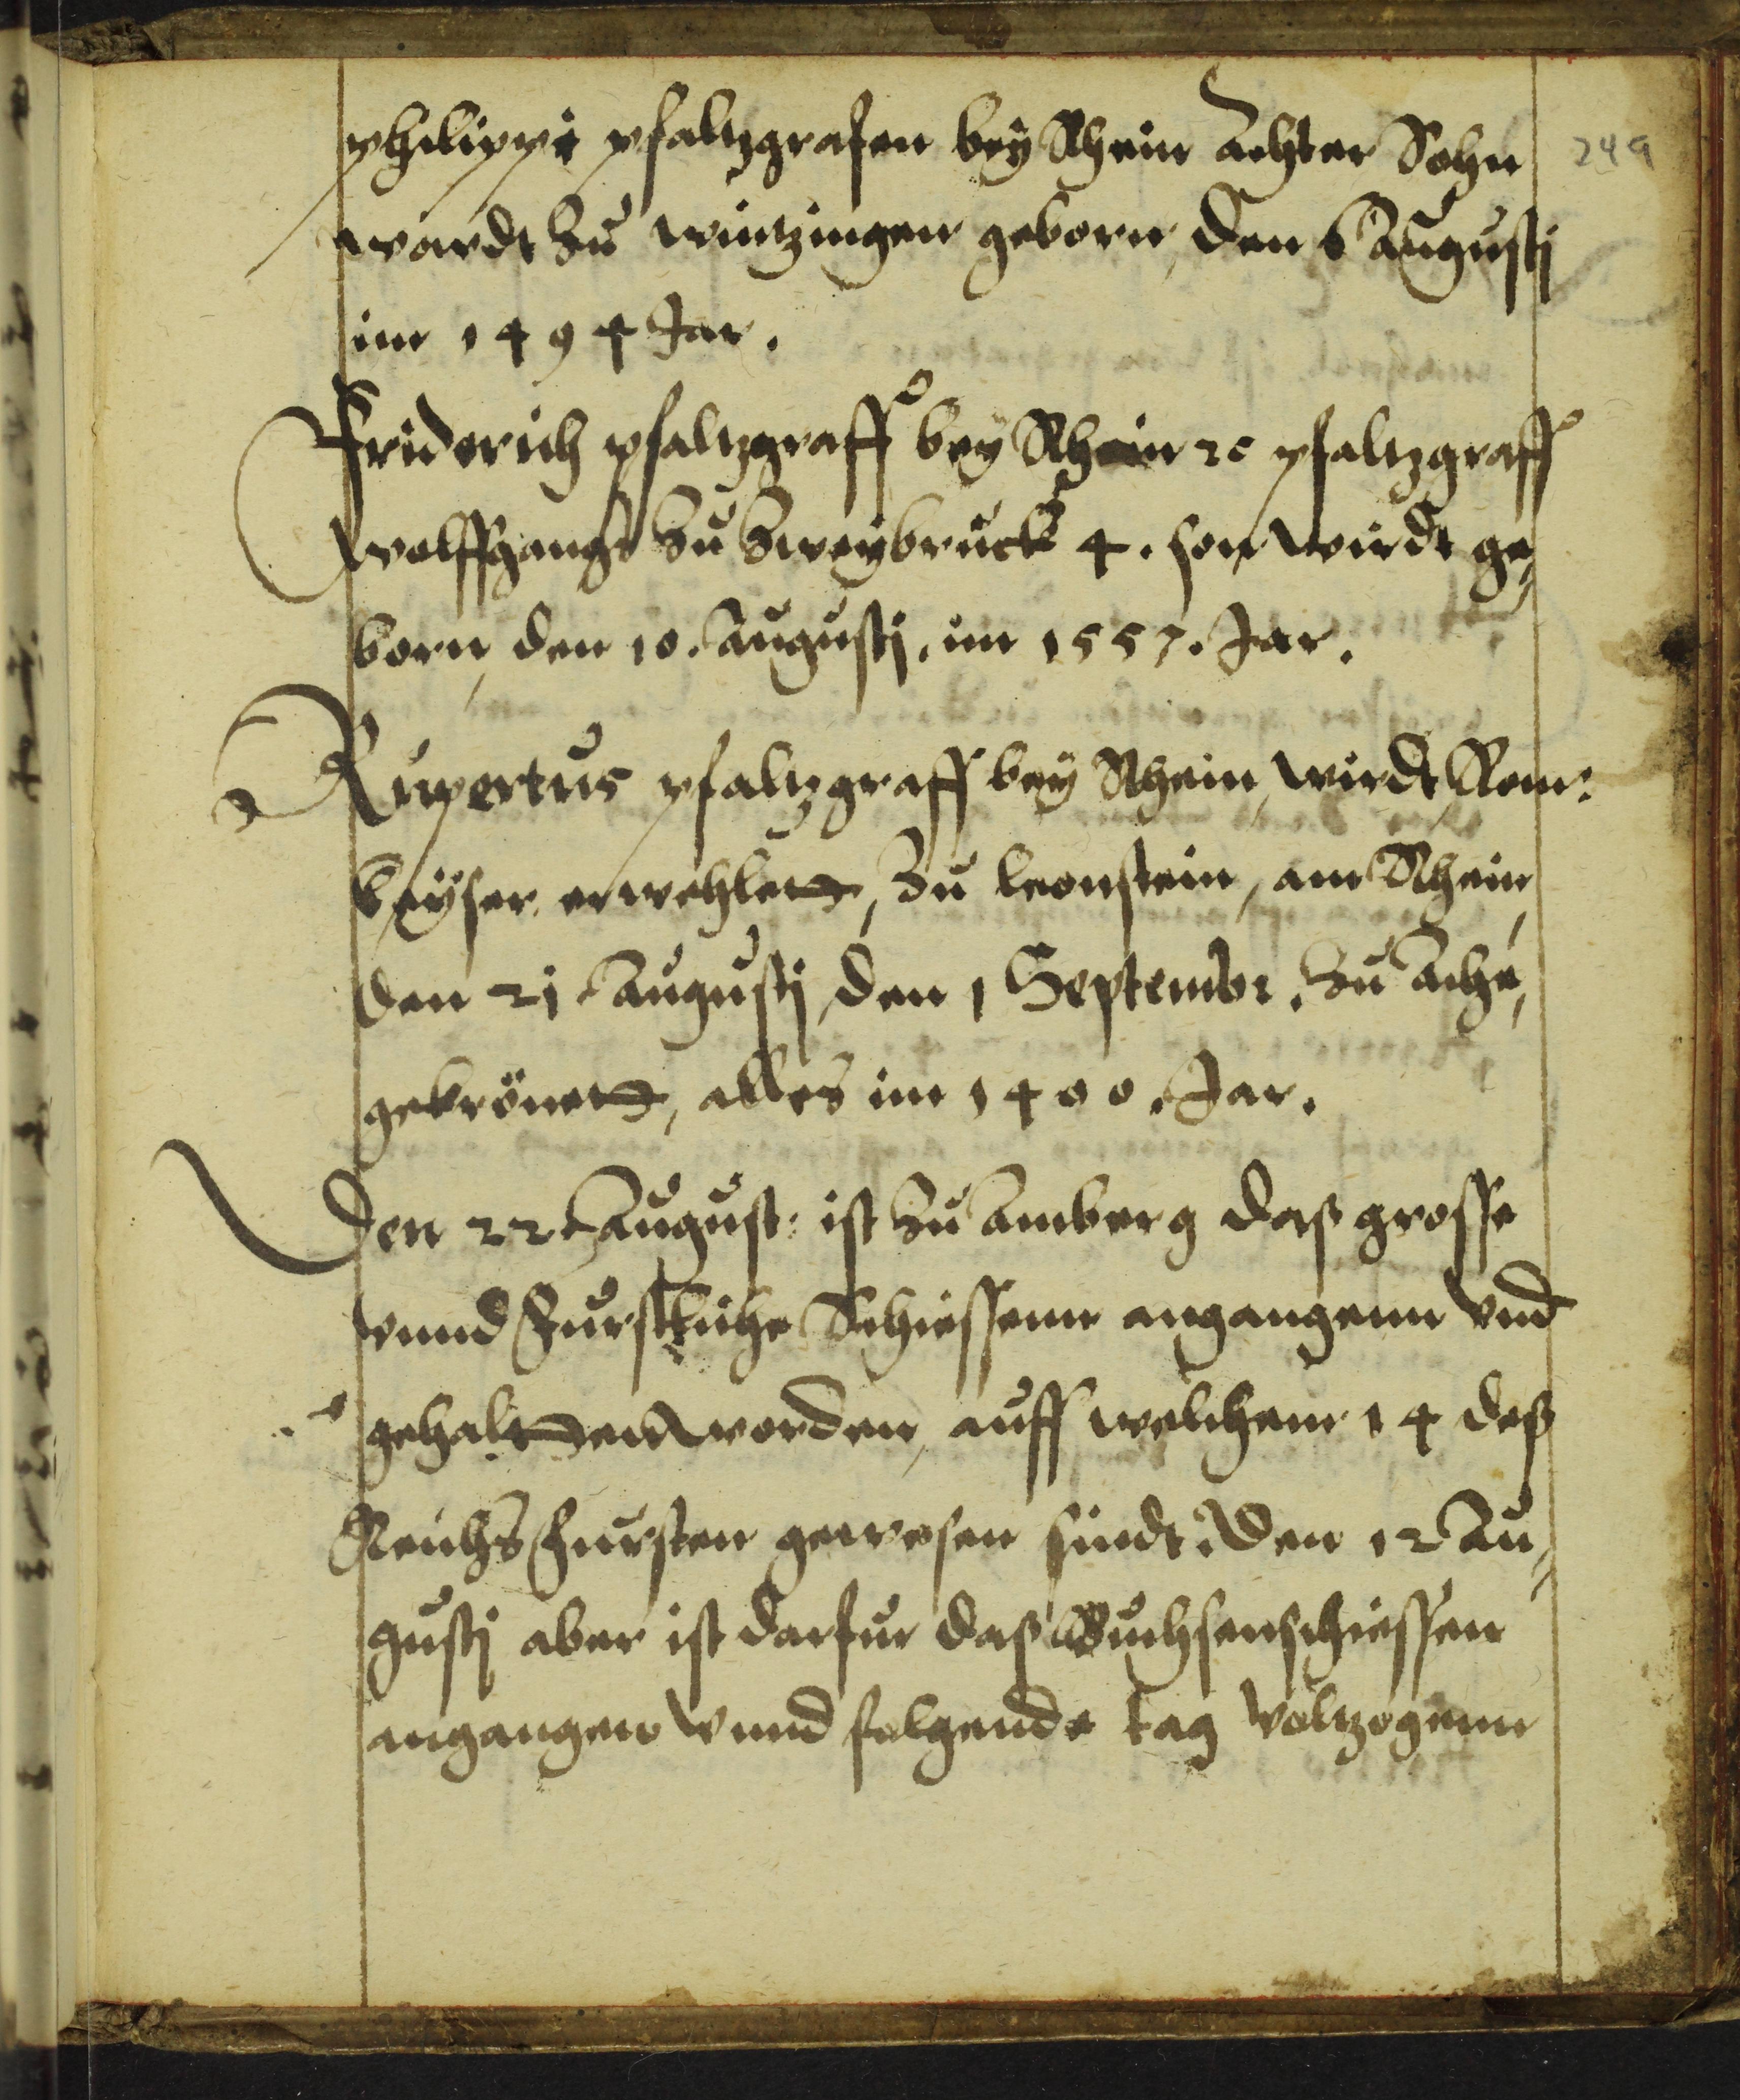 249
philippi pfaltzgrafen bey Rhein achter Sohn
wardt zu wintzingen geborn, den 6 Augustj
im 1494 Jar.
Friderich pfaltzgraff bey Rhein ꝛc pfaltzgraff
wolffgangs zu Zweybruck 4. son wirdt ge„
born, den 10. Augustj. im 1557. Jar.
Rupertus pfaltzgraff bey Rhein, wirdt Rom:
keyser erwehlett, zu leonstein, am Rhein,
den 21 Augustj, den 1 Septembr. zu Ache,
gekrönett, alles im 1400. Jar.
Den 22 August: ist zu Amberg daß grosse
vnnd Furstliche Schiessenn angangenn vnd
gehalttenn worden, auff welchem 14 deß
Reichs Fursten gewesen sindt. Den 12 Au„
gustj aber ist darfur daß Buchsenschiessen
angangen vnnd folgende tag volzogenn